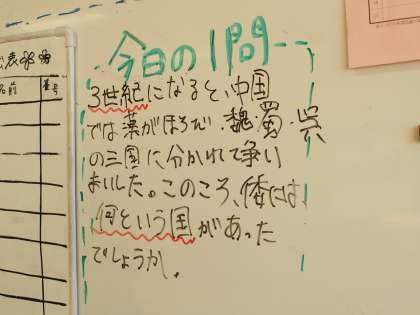 今日の1問--
3世紀になると、中国
では漢がほろび、魏・蜀・呉
の三国に分かれて争い
ました。このころ、倭には
何という国があった
でしょうか。
名前
番号